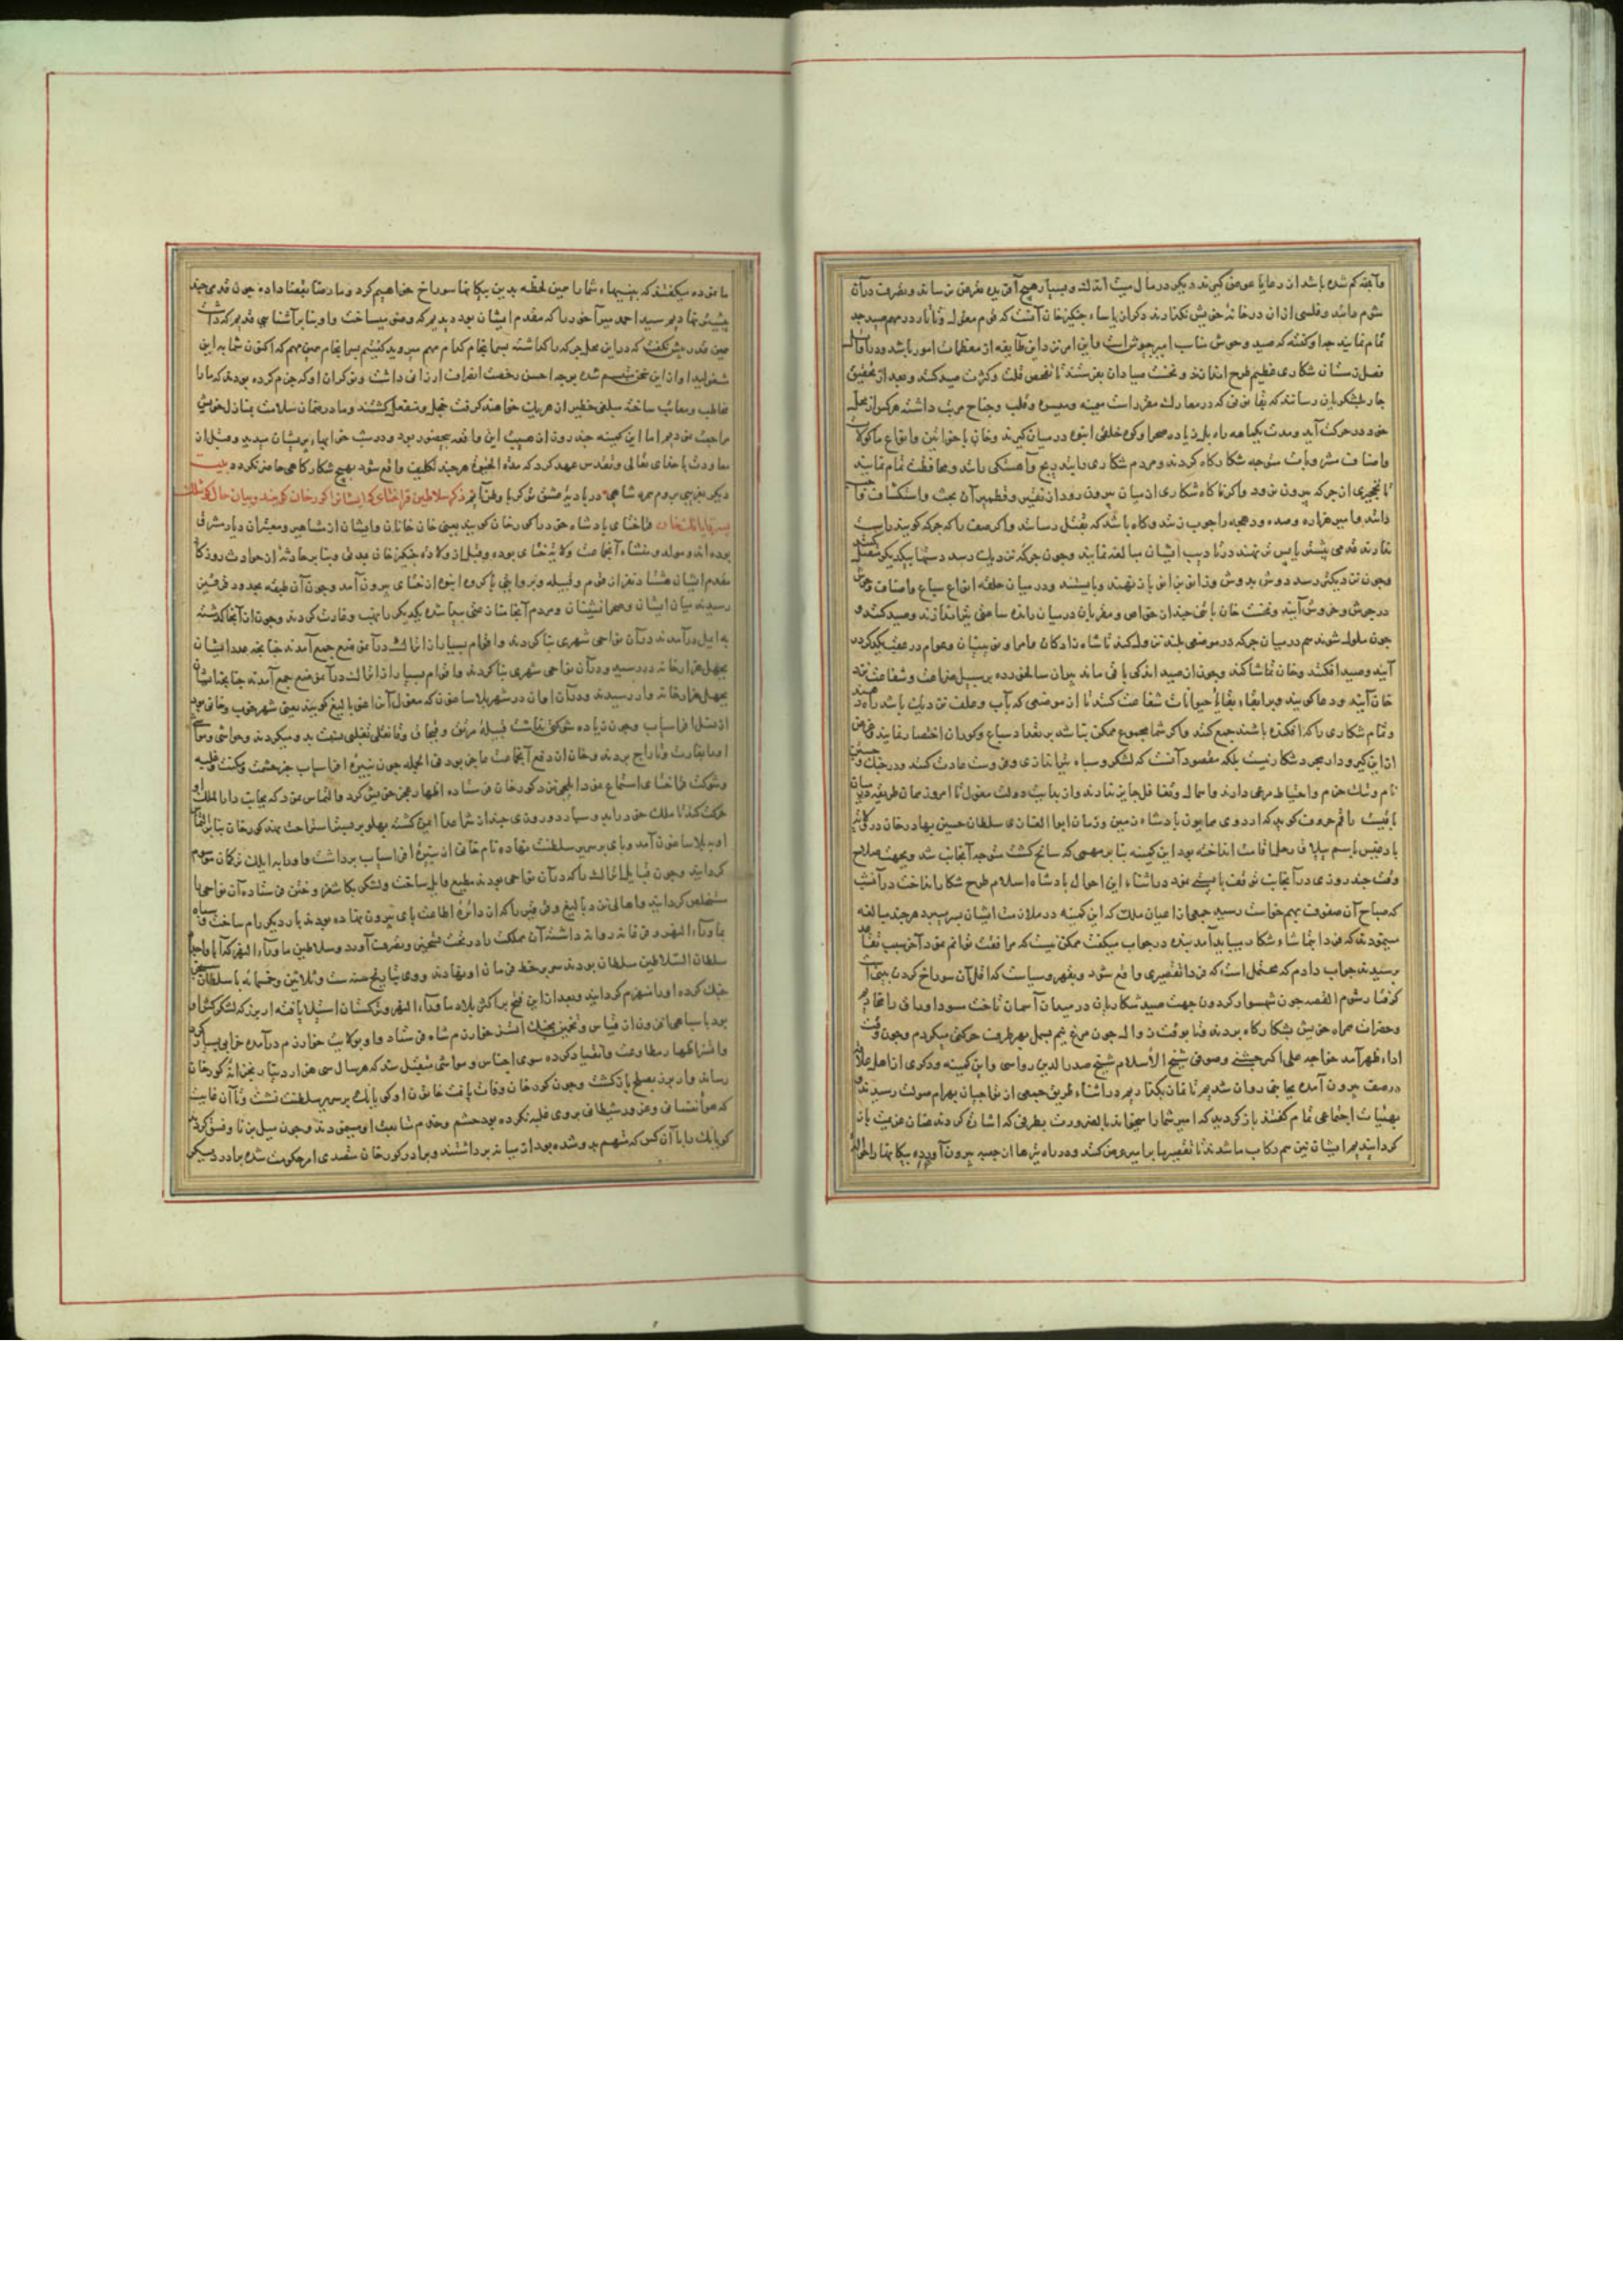 وآنچه کم شده باشد از رعایا عوض گیرند دیگر در مال میت اندک و بسیار هیچ آفریده تعرض نرساند و تصرف در آن
شوم دانند و فلسی از آن در خزانه خویش نگذارند ذکر آن یاساء چنگیز خان آنست که قوم مغول و تاتار در مهم صید جد
تمام نمایند چه او گفته که صید وحوش مناسب امیر جیوش است و این امر نزد این طایفه از معظمات امور باشد و در اوایل
فصل زمستان شکاری عظیم طرح اندازند و نخست صیادان بفرستند تا تفحص قلت و کثرت صید کنند و بعد از تحقیق
جار بلشکریان رسانند که بقانونی که در معارک مقرر است میمنه و میسره و قلب و جناح مرتب داشته هرکس از محل
خود در حرکت آید و مدت یکماهه راه بل زیاده صحرا و کوه خلقی انبوه در میان گیرند و خان با خواتین و انواع ماکولات
و اصناف مشروبات متوجه شکارگاه گردند و مردم شکاری را بتدریج و آهستگی رانند و محافظت تمام نمایند
تا نخجیری از جرکه بیرون نرود و اگر ناگاه شکاری از میان بیرون رود از نقیر و قطمیر آن بحث و استکشاف
دانند و امیر هزاره و صده و دهجه را چوب زنند و گاه باشد که بقتل رسانند و اگر صف را که جرکه گویند راست
ندارند قدمی پیشتر یا پس تر نهند در تأدیب ایشان مبالغه نمایند و چون جرکه نزدیک رسد دستها بیکدیگر متصل
و چون نزدیکتر رسد دوش بدوش و زانو بزانو باز نهند و بایستند و در میان حلقه انواع سباع و اصناف وحوش
در جوش و خروش آیند و نخست خان با تنی چند از خواص و مقربان در میان رانده ساعتی تیر اندازند و صید کنند و
چون ملول شوند هم در میان جرکه در موضعی بلند نزول کند تا شاهزادگان و امرا و نوینان و عوام در عقب یکدیگر در
آیند و صید افکنند و خان تماشا کند و چون از صید اندکی باقی ماند پیران سالخورده بر سبیل ضراعت و شفاعت نزد
خان آیند و دعا گویند و بر ابقاء بقایاء حیوانات شفاعت کنند تا از موضعی که بآب و علف نزدیک باشد راه دهند
و تمام شکاری را که افکنده باشند جمع کنند و اگر شمار مجموع ممکن نباشد بر تعداد سباع و گوران اختصار نمایند و غرض
ازین گیرودار مجرد شکار نیست بلکه مقصود آنست که لشکر و سپاه تیراندازی و فروسیت عادت کنند و در جنگ و
نام و ننگ حزم و احتیاط مرعی دارند و اهمال و تغافل جایز ندارند و از بدایت دولت مغول تا امروز همان طریقه در میان
باقیست راقم حروف گوید که اردوی همایون پادشاه زمین و زمان ابوالغازی سلطان حسین بهادر خان در
بادغیس باسم ییلاق رحل اقامت انداخته بود این کمینه بنابر مهمی که سانح گشت متوجه آنجانب شد و بجهت صلاح
وقت چند روزی در آنجانب توقف بایستی نمود در اثناء این احوال پادشاه اسلام طرح شکار انداخت در آن شب
که صباح آن صفوف بهم خواست رسید جمعی از اعیان ملک که این کمینه در ملازمت ایشان بسر میبرد هر چند مبالغه
مینمودند که فردا بتماشاء شکار میباید آمد بنده در جواب میگفت ممکن نیست که مرافقت توانم نمود آخر سبب
پرسیدند جواب دادم که محتمل است که فردا تقصیری واقع شود و بقهر و سیاست که اقل آن سوراخ کردن بینی است
گرفتار شوم القصه چون شهسوار گردون جهت صید شکاریان در میدان آسمان تاخت
وحضرات همراه خویش بشکارگاه بردند و تا بوقت زوال چون مرغ نیم بسمل بهر طرف حرکتی میکردم و چون وقت
اداء ظهر آمد خواجه علی اکبر چشتی و صوفی شیخ الاسلام شیخ صدر الدین رواسی و این کمینه و دیگری از اهل علم
در صف بیرون آمده بجانبی روان شدیم تا نماز بگذاریم در اثناء طریق جمعی از تواجیان بهرام صولت رسیدند
بهیأت اجتماعی تمام گفتند باز گردید که امیر شما را میخواند بالضرورت بطرفی که اشارت کردند عنان عزیمت باز
گردانیدیم ایشان نیز هم رکاب ما شدند تا تقصیر ما را بامیر عرض کنند و در راه تیرها از جعبه بیرون آورده پیکانها را
ما نموده میگفتند که بینیهاء شما را همین لحظه بدین پیکانها سوراخ خواهیم کرد و ما رضا بقضا داده چون قدمی چند
پیشتر نهادیم سید احمد میرآخور را که مقدم ایشان بود دیدیم که وضو میساخت و او بنابر آشنایی قدیم که داشت
همین قدر بیش نگفت که در این محل جرکه را گذاشته بسرانجام کدام مهم میروید گفتیم بسرانجام همین مهم که اکنون شما به این
مشغولید او ازین سخن متبسم شده بوجه احسن رخصت انصراف ارزانی داشت و نوکران او که جزم کرده بودند که ما را
مخاطب و معاتب ساخته مبلغی خطیر از هر یک خواهند گرفت خجل و منفعل گشتند و ما در ضمان سلامت بمنازل خویش
مراجعت نمودیم اما این کمینه چند روز از هیبت این واقعه بیحضور بود و در شب خوابهاء پریشان میدید و قبل از
معاودت با خدای تعالی و تقدس عهد کرد که مدة الحیوة هر چند تکلیف واقع شود بهیچ شکارگاهی حاضر نگردد بیت
ذکر سلاطین قراختای که ایشانرا کورخان گویند و بیان حال کوشلک
پسر تایانک خان قراختای پادشاه خود را کورخان گویند یعنی خان خانان و ایشان از مشاهیر و معتبران دیار مشرق
بوده اند و مولد و منشاء آنجماعت ولایت ختای بوده و قبل از ولادت چنگیز خان بمدتی و بنابر حادثه از حوادث روزگار
مقدم ایشان هشتاد نفر از قوم و قبیله و بروایتی با گروه انبوه از ختای بیرون آمد و چون آن طبقه بحدود قرقیز
رسیدند میان ایشان و صحرانشینان و مردم آنجا شانه سختی پیدا شده یکدیگر را نهب و غارت کردند و چون از آنجا گذشته
به ایمیل درآمدند در آن نواحی شهری بنا کردند و اقوام بسیار از اتراک در آن موضع جمع آمدند چنانچه عدد ایشان
بچهل هزار خانه در رسید و در آن نواحی شهری بنا کردند و اقوام بسیار از اتراک در آن موضع جمع آمدند چنانچه
بچهل هزار خانه وار رسیدند و در آن اوان در شهر بلاساغون که مغول آنرا غز بالیغ گویند یعنی شهر خوب و خان
از نسل افراسیاب و چون زیاده شوکتی نداشت قبیله قرلق و قنجاق و قانقلی تغلبی نسبت بدو میکردند و حواشی و مواشی
او را بغارت و تاراج بردند و خان از دفع آنجماعت عاجز بود فی الجمله چون نبیره افراسیاب خبر حشمت و مکنت و غلبه
وشوکت قراختای استماع نمود ایلچی نزد کورخان فرستاده اظهار عجز خویش کرد و التماس نمود که بجانب دار الملک او
حرکت کند
اوبه بلاساغون آمد و پای بر سریر سلطنت نهاده نام خانی از نبیره افراسیاب برداشت و او را به ایلک ترکان موسوم
گردانید و چون قبایل اتراک را که در آن نواحی بودند مطیع و ایل ساخت لشکر بکاشغر و ختن فرستاده آن نواحی را
مستخلص گردانید
ماوراء النهر و فرغانه روانه داشته آن مملکت را در تحت تسخیر و تصرف آورد و سلاطین ماوراء النهر که آبا و اجداد
سلطان السلاطین سلطان بودند سر بر خط فرمان او نهادند و وی بتاریخ سنه ست و ثلاثین و خمسمائه با سلطان سنجر
جنگ کرده او را منهزم گردانید و بعد از این فتح بر اکثر بلاد ماوراء النهر و ترکستان استیلا یافته اربز که لشکرکش او
بود با سپاهی افزون از قیاس و تخمین بجنگ اتسز خوارزمشاه فرستاد و او بولایت خوارزم درآمده خرابی بسیار کرد
و اتسز اظهار مطاوعت و انقیاد کرده سوی اجناس و مواشی متقبل شد که هر سال سی هزار دینار بخزانه کورخان
رساند و اربز بصلح بازگشت و چون کورخان وفات یافت خاتون او کویانک بر سریر سلطنت نشست و تا آن غایت
که هواء نفسانی و غرور شیطانی بر وی غلبه نکرده بود حشم و خدم متابعت او مینمودند و چون میل بزنا و فسق کرد
کویانک را با آن کس که متهم بدو شده بود از میانه برداشتند و برادر کورخان متصدی امر حکومت شده برادر دیگر